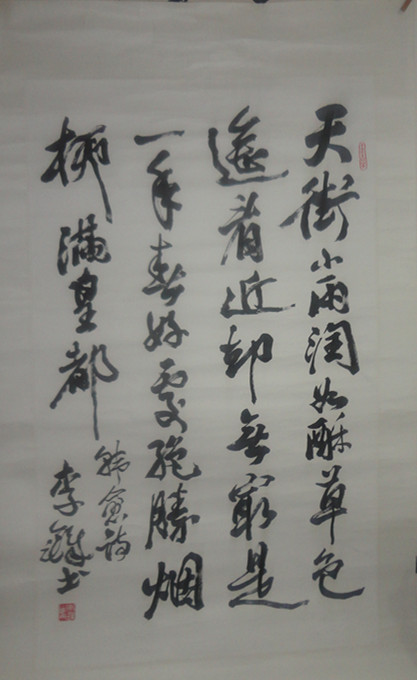 天街小雨润如酥草色
遥看近却無最是
一年春好處絕勝烟
柳滿皇都
韩愈诗
李鐸书